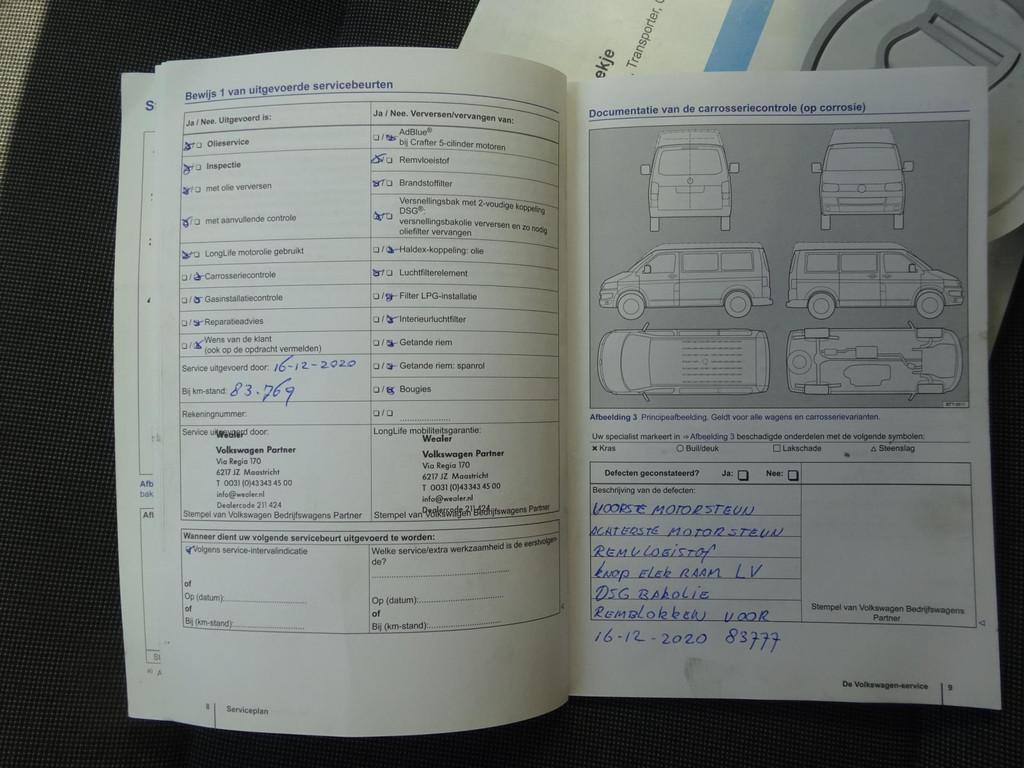 ekje
Transporter,
S
Afb
bak
Afl
Bewijs 1 van uitgevoerde servicebeurten
Ja / Nee. Uitgevoerd is:
☒/☐ Olieservice
☒/☐ Inspectie
☒/☐ met olie verversen
☒/☐ met aanvullende controle
☒/☐ LongLife motorolie gebruikt
☐/☒ Carrosseriecontrole
☐/☒ Gasinstallatiecontrole
☐/☒ Reparatieadvies
☐/☒ Wens van de klant
(ook op de opdracht vermelden)
Service uitgevoerd door: 16-12-2020
Bij km-stand: 83.769
Rekeningnummer:
Service uitgevoerd door:
Wealer
Volkswagen Partner
Via Regia 170
6217 JZ Maastricht
T 0031 (0)43343 45 00
info@wealer.nl
Dealercode 211 424
Stempel van Volkswagen Bedrijfswagens Partner
Ja / Nee. Verversen/vervangen van:
☐/☒ AdBlue®
bij Crafter 5-cilinder motoren
☒/☐ Remvloeistof
☒/☐ Brandstoffilter
Versnellingsbak met 2-voudige koppeling
DSG®:
☒/☐ versnellingsbakolie verversen en zo nodig
oliefilter vervangen
☐/☒ Haldex-koppeling: olie
☒/☐ Luchtfilterelement
☐/☒ Filter LPG-installatie
☐/☒ Interieurluchtfilter
☐/☒ Getande riem
☐/☒ Getande riem: spanrol
☐/☒ Bougies
☐/☐ ....................
LongLife mobiliteitsgarantie:
Wealer
Volkswagen Partner
Via Regia 170
6217 JZ Maastricht
T 0031 (0)43343 45 00
info@wealer.nl
Dealercode 211 424
Stempel van Volkswagen Bedrijfswagens Partner
Wanneer dient uw volgende servicebeurt uitgevoerd te worden:
☑ Volgens service-intervalindicatie
of
Op (datum):
of
Bij (km-stand):
Welke service/extra werkzaamheid is de eerstvolgen-
de?
Op (datum):
of
Bij (km-stand):
8 | Serviceplan
Documentatie van de carrosseriecontrole (op corrosie)
Afbeelding 3 Principeafbeelding. Geldt voor alle wagens en carrosserievarianten.
Uw specialist markeert in ⇒ Afbeelding 3 beschadigde onderdelen met de volgende symbolen:
× Kras ○ Buil/deuk □ Lakschade △ Steenslag
Defecten geconstateerd? Ja: ☐ Nee: ☐
Beschrijving van de defecten:
VOORSTE MOTORSTEUN
ACHTERSTE MOTORSTEUN
REMVLOEISTOF
KNOP ELEK RAAM LV
DSG BAKOLIE
REMBLOKKEN VOOR
16-12-2020 83777
Stempel van Volkswagen Bedrijfswagens
Partner
De Volkswagen-service | 9